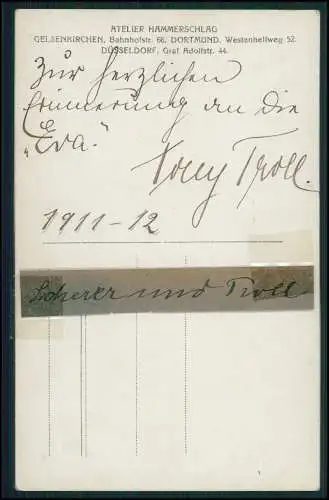 ATELIER HAMMERSCHLAG
GELSENKIRCHEN, Bahnhofstr. 66, DORTMUND, Westenhellweg 52.
DÜSSELDORF, Graf Adolfstr. 44.
Zur herzlichen
Erinnerung an die
„Eva."
Tony Troll.
1911-12
Scherer und Troll